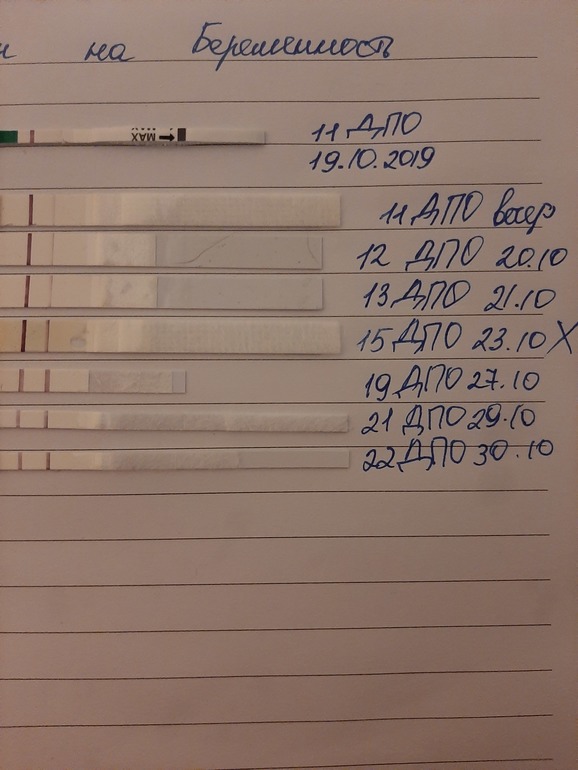 на Беременность
MAX
11 ДПО
19.10.2019
11 ДПО вечер
12 ДПО 20.10
13 ДПО 21.10
15 ДПО 23.10 X
19 ДПО 27.10
21 ДПО 29.10
22 ДПО 30.10